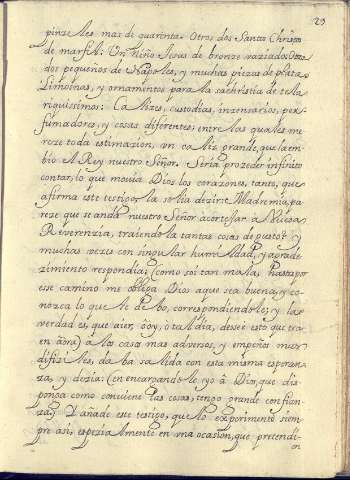 29
pinzeles mas de quarenta. Otros dos Santos Christos
de marfil: Un niño Jesus de bronze vaziado, Otros
dos pequeños de Napoles, y muchas piezas de plata,
Limosnas, y ornamentos para la sachristia de telas
riquissimas: Calizes, custodias, inzensarios, per-
fumadores, y cosas diferentes, entre las quales me-
reze toda estimazion, un caliz grande, que la em-
bio el Rey nuestro Señor. Seria prozeder infinito
contar, lo que mouia Dios los corazones, tanto, que
afirma este testigo, la solia dezir: Madre mia, pa-
reze que se anda nuestro Señor a cortejar a Vuesa
Reverenzia, traiendola tantas cosas de gusto? y
muchas vezes con singular humildad, y agrade-
zimiento respondia; (como soi tan mala, hasta por
ese camino me obliga Dios a que sea buena, y co-
nozca lo que le debo, correspondiendole; y la
verdad es, que aier, o oy, o tal dia, desee esto que tra-
en aora) a los casos mas adversos, y empeños mas
difiziles, daba salida con esta misma esperan-
za, y dezia: (en encargandole yo a Dios, que dis-
ponga como conviene las cosas, tengo grande confian-
za.) Y añade este testigo, que lo experimento siem-
pre asi, espezialmente en una ocasion, que pretendi-
en